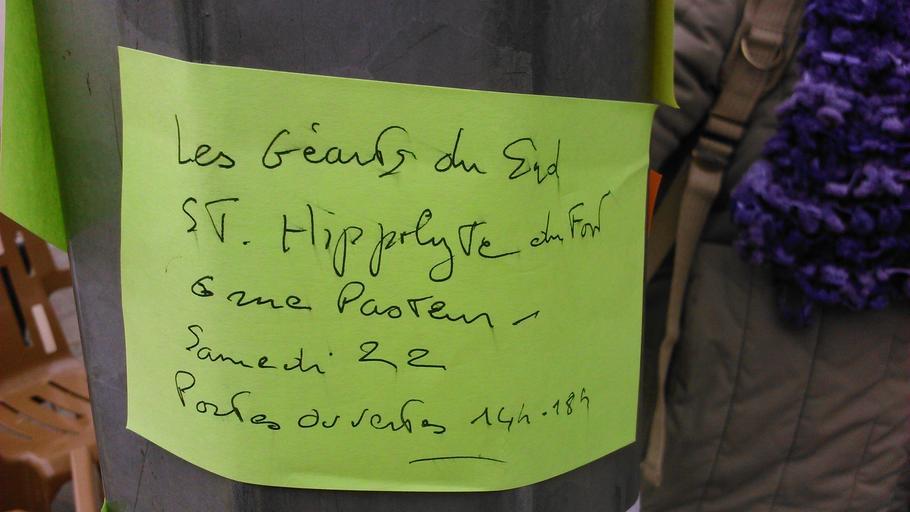 Les Géants du Sud
ST. Hippolyte du Fort
6 rue Pasteur -
Samedi 22
Portes ouvertes 14h-18h